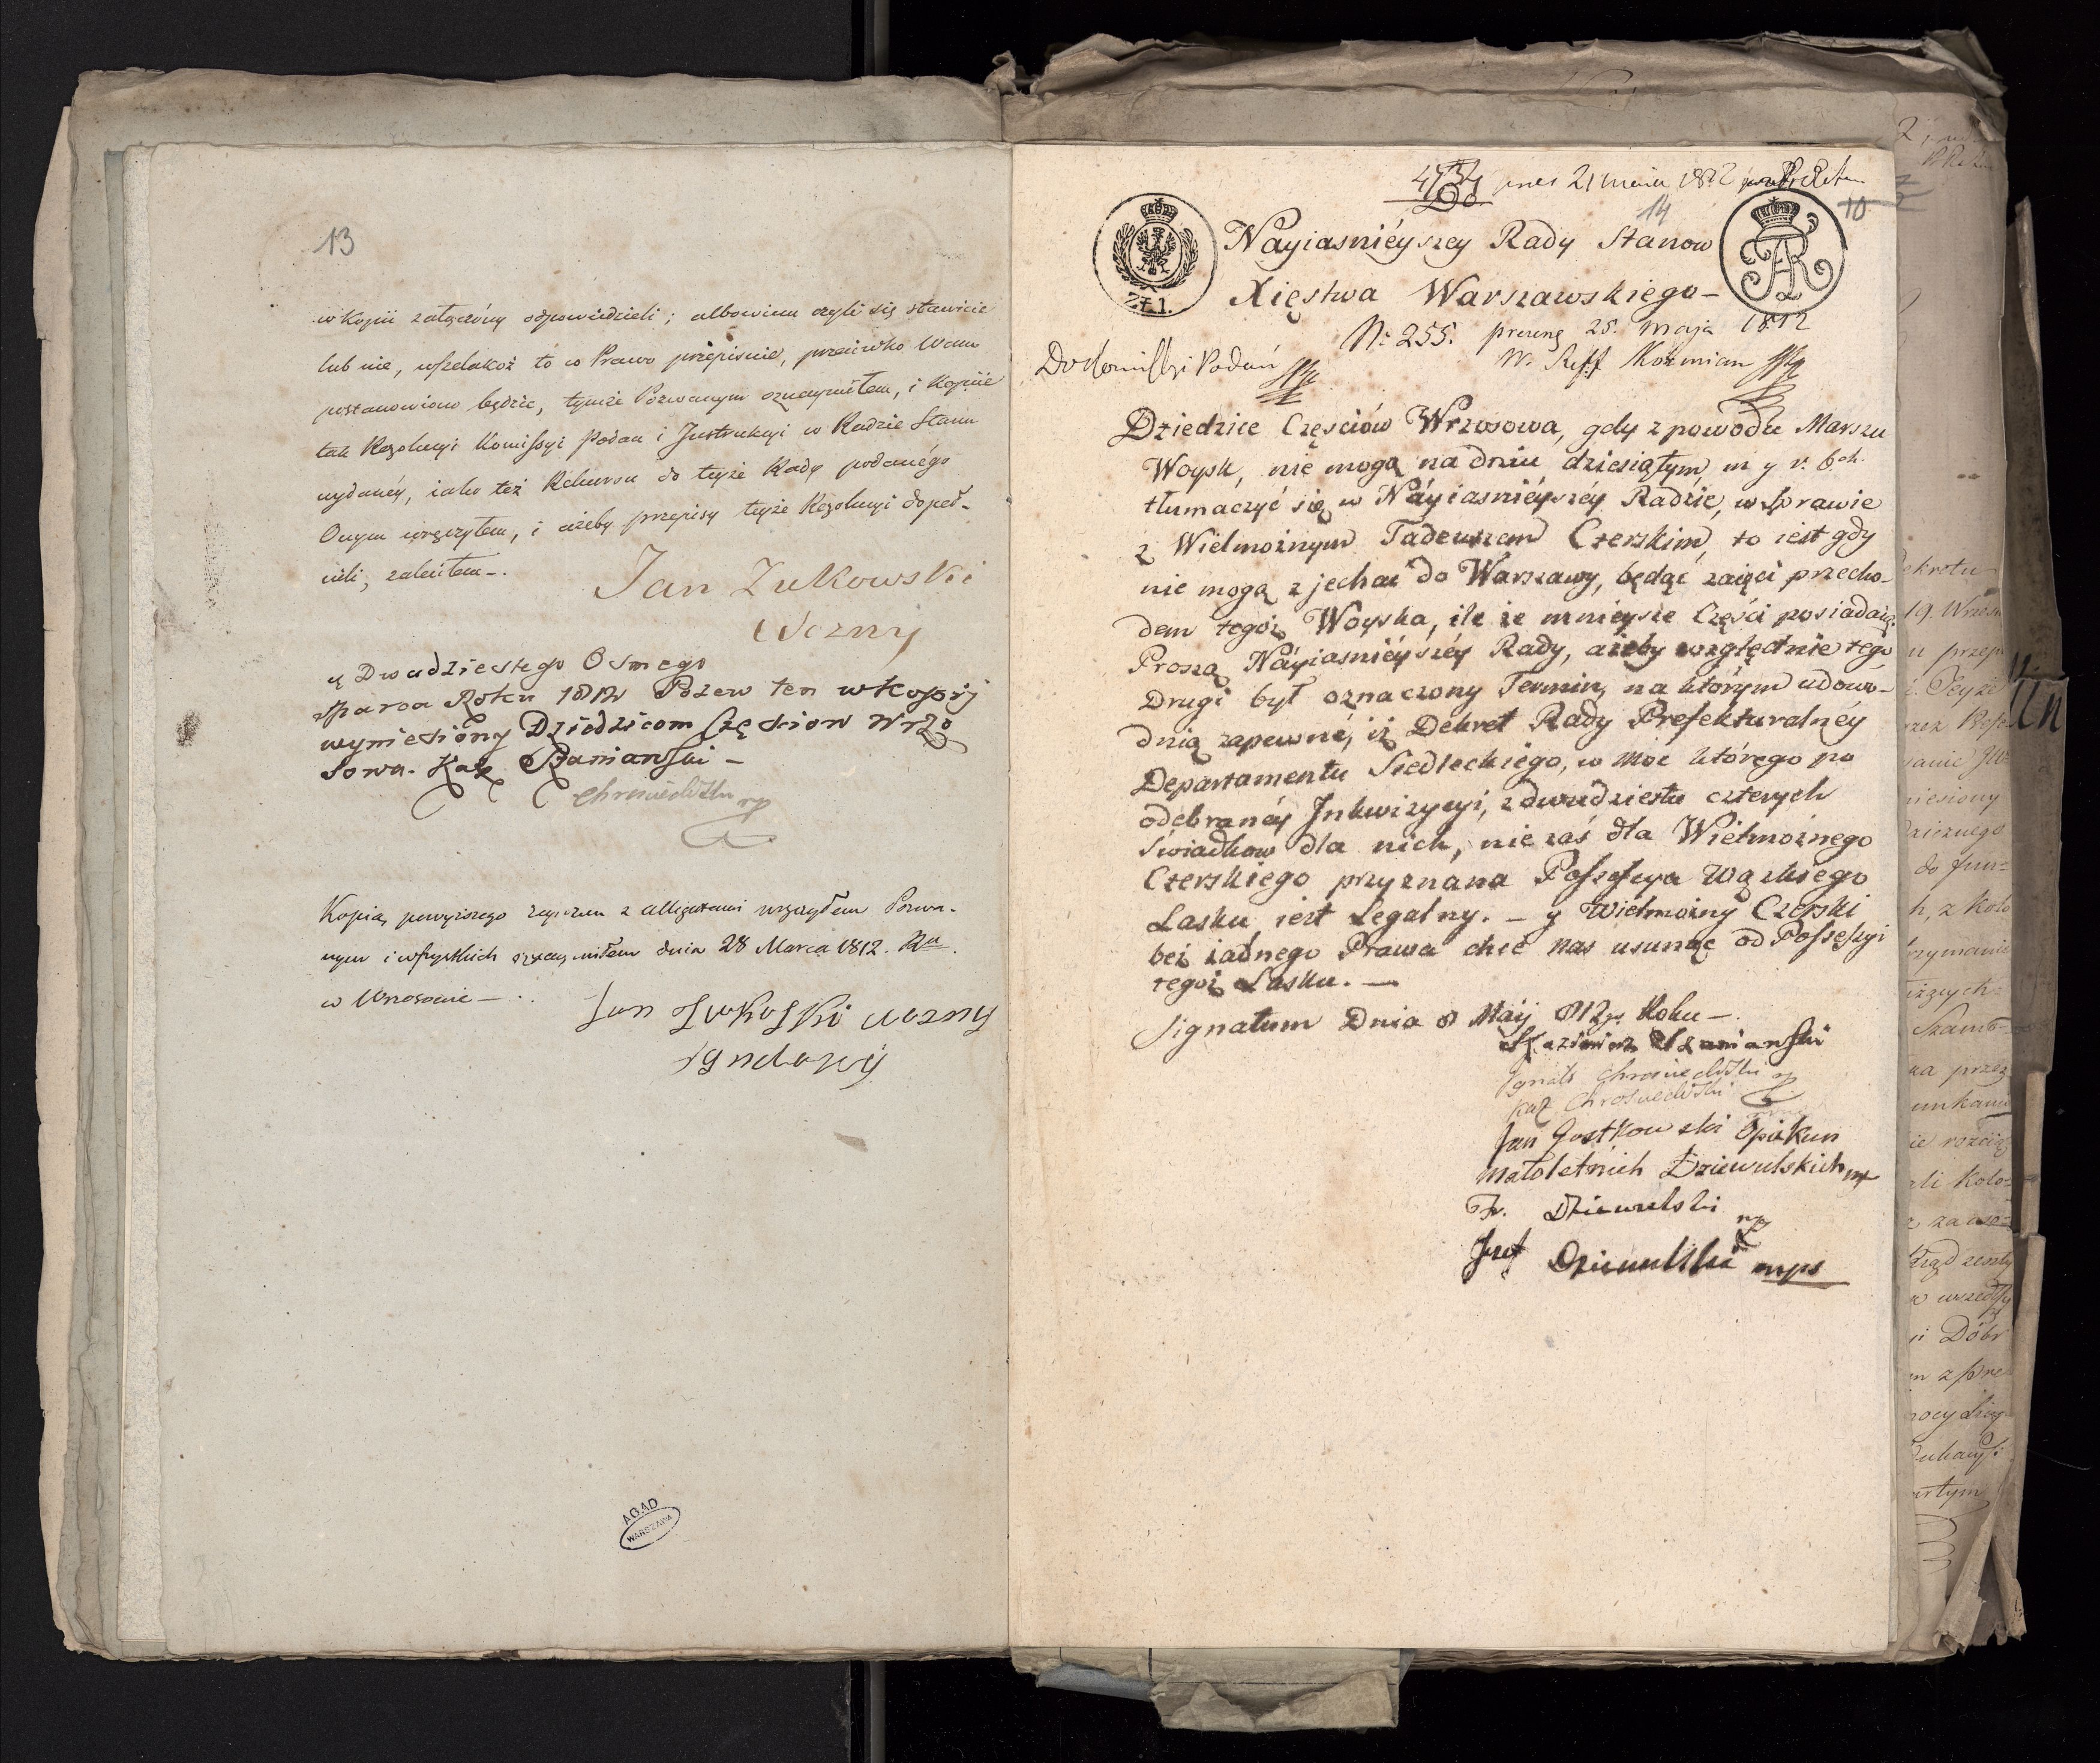 13
w Kopii załączony odpowiedzieli; albowiem czyli się stawicie
lub nie, wszelakoż to co Prawo przepisuie, przeciwko Wam
postanowiono będzie, tymże Pozwanym oznaymiłem, i Kopiie
tak Rezolucyi Komissyi Podań i Instrukcyi w Radzie Stanu
wydaney, iako też Rekursu do teyże Rady podanego
Onym wręczyłem, i ażeby przepisy teyże Rezolucyi dopeł-
nili, zaleciłem-.
Jan Zukowski
Wozny
y Dwudziestego Osmego
Marca Roku 1812 Pozew ten w Kopij
wyniesiony Dziedzicom Częsciow Wrzo
sowa. Kaz Szaniawski -
Chrościewski mp
Kopią powyższego z allegatami wręczyłem Pozwa-
nym i wszystkich oznaymiłem dnia 28 Marca 1812. Ru.
w Wrzosowie -.
Jan Zukoski wozny
Sondowy
4734 pres 21 maia 1812
Do
14
10
Nayiasnieyszey Rady Stanow
Xięstwa Warszawskiego-
ZŁ 1.
No 255. prezent 25. Maja 1812
Do Komissyi Podań
W. Reff Kozmian
Dziedzice Częściów Wrzosowa, gdy z powodu Marszu
Woysk, nie mogą na dniu dziesiątym m y r. b.ch.
tłumaczyć się w Náyiasniéyszéy Radzie, w Sprawie
z Wielmożnym Tadeuszem Czerskim, to iest gdy
nie mogą zjechać do Warszawy, będąć zaięci przecho-
dem tegoż Woyska, ile że mnieysze Części posiadaią.
Proszą Náyiasniéyszéy Rady, ażeby względnie tego
Drugi był oznaczony Termin, na którym udowo-
dnią zapewne, iż Dekret Rady Prefekturalnéy
Departamentu Siedleckiego, w moc którego po
odebranéy Inkwizycyi, z dwudziestu czterych
Świadkow dla nich, nie zaś dla Wielmożnego
Czerskiego przyznana Possessya Wązkiego
Lasku, iest Legalny. - y Wielmożny Czerski
bez żadnego Prawa chce nas usunąć od Possessyi
tegoż Lasku. -
Signatum Dnia 8 Maij 812go Roku -.
Kazimierz Szaniawski
Ignacy Chrościewski mp
Kaz Chrościewski
Jan Gostkowski Opiekun
małoletnich Dziewulskich mp
Fr. Dziewulski mp
Józef Dziewulski mps
AGAD
WARSZAWA